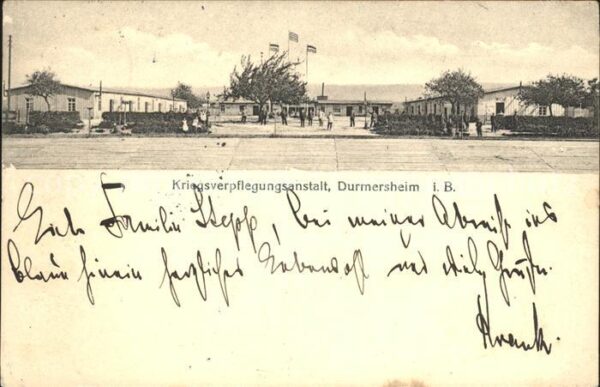 Kriegsverpflegungsanstalt, Durmersheim i. B.
Familie Stepp, bei meiner Abreise ins
Blaue hinein herzliches Lebewohl und viele Grüße
Frank.